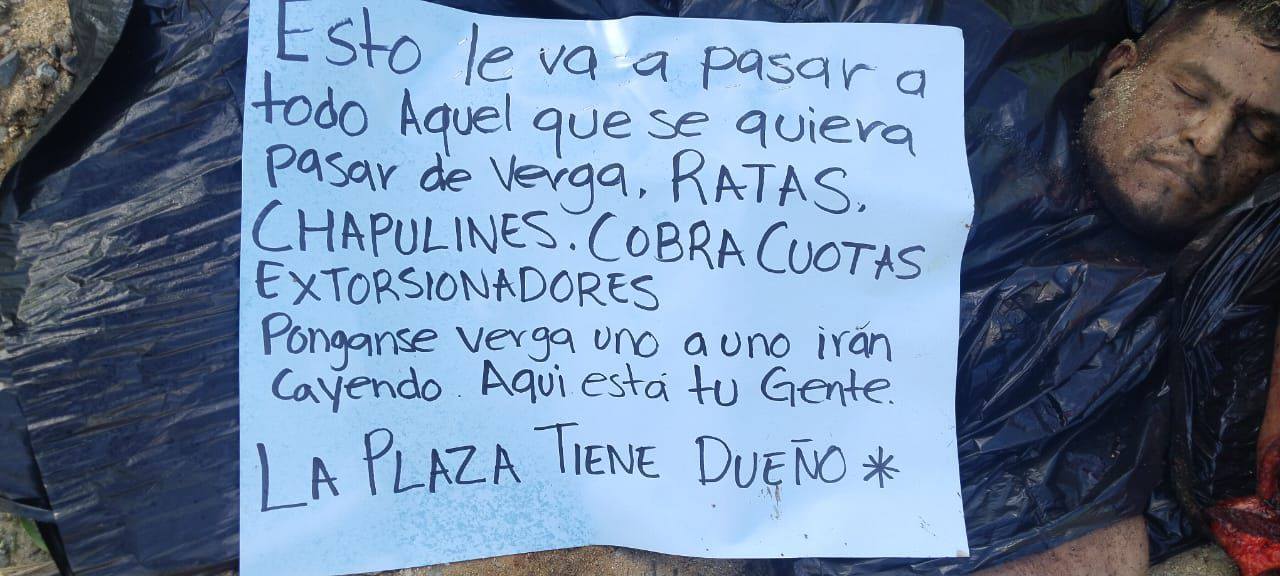 Esto le va a pasar a
todo Aquel que se quiera
pasar de verga. RATAS.
CHAPULINES. COBRA CUOTAS
EXTORSIONADORES
Ponganse verga uno a uno irán
Cayendo. Aqui está tu Gente.
LA PLAZA TIENE DUEÑO *